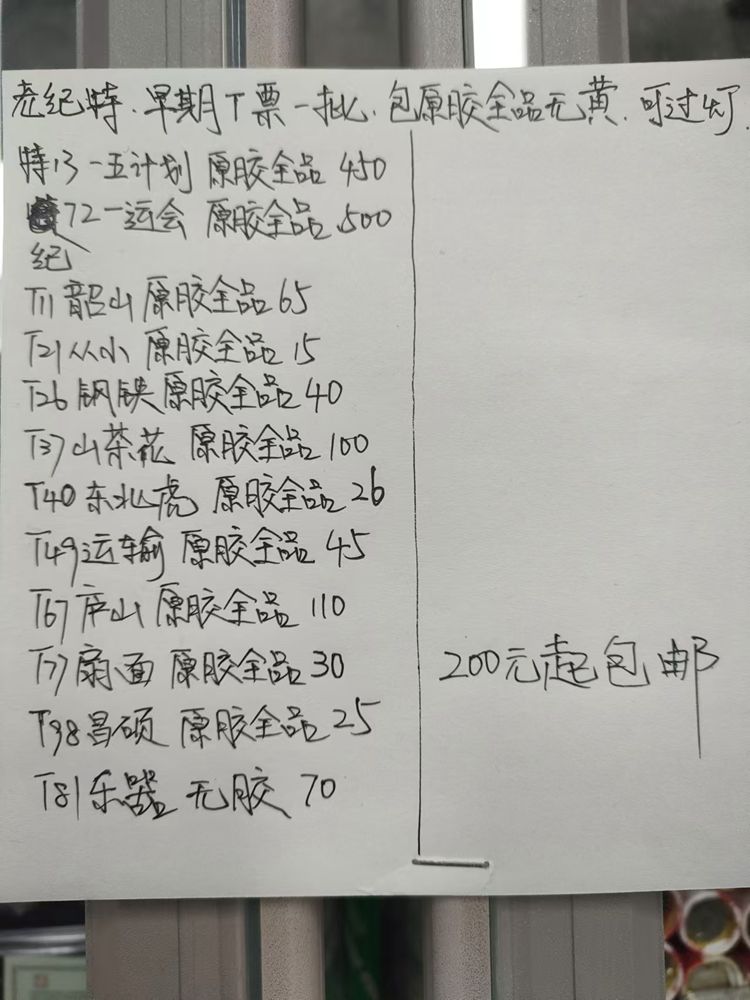 老纪特.早期T票一批.包原胶全品无黄.可过灯.
特13一五计划 原胶全品 450
72一运会 原胶全品 500
纪
T11韶山 原胶全品 65
T21从小 原胶全品 15
T26钢铁原胶全品 40
T37山茶花 原胶全品 100
T40东北虎 原胶全品 26
T49运输 原胶全品 45
T67庐山 原胶全品 110
T77扇面 原胶全品 30
T98昌硕 原胶全品 25
T81乐器 无胶 70
200元起包邮